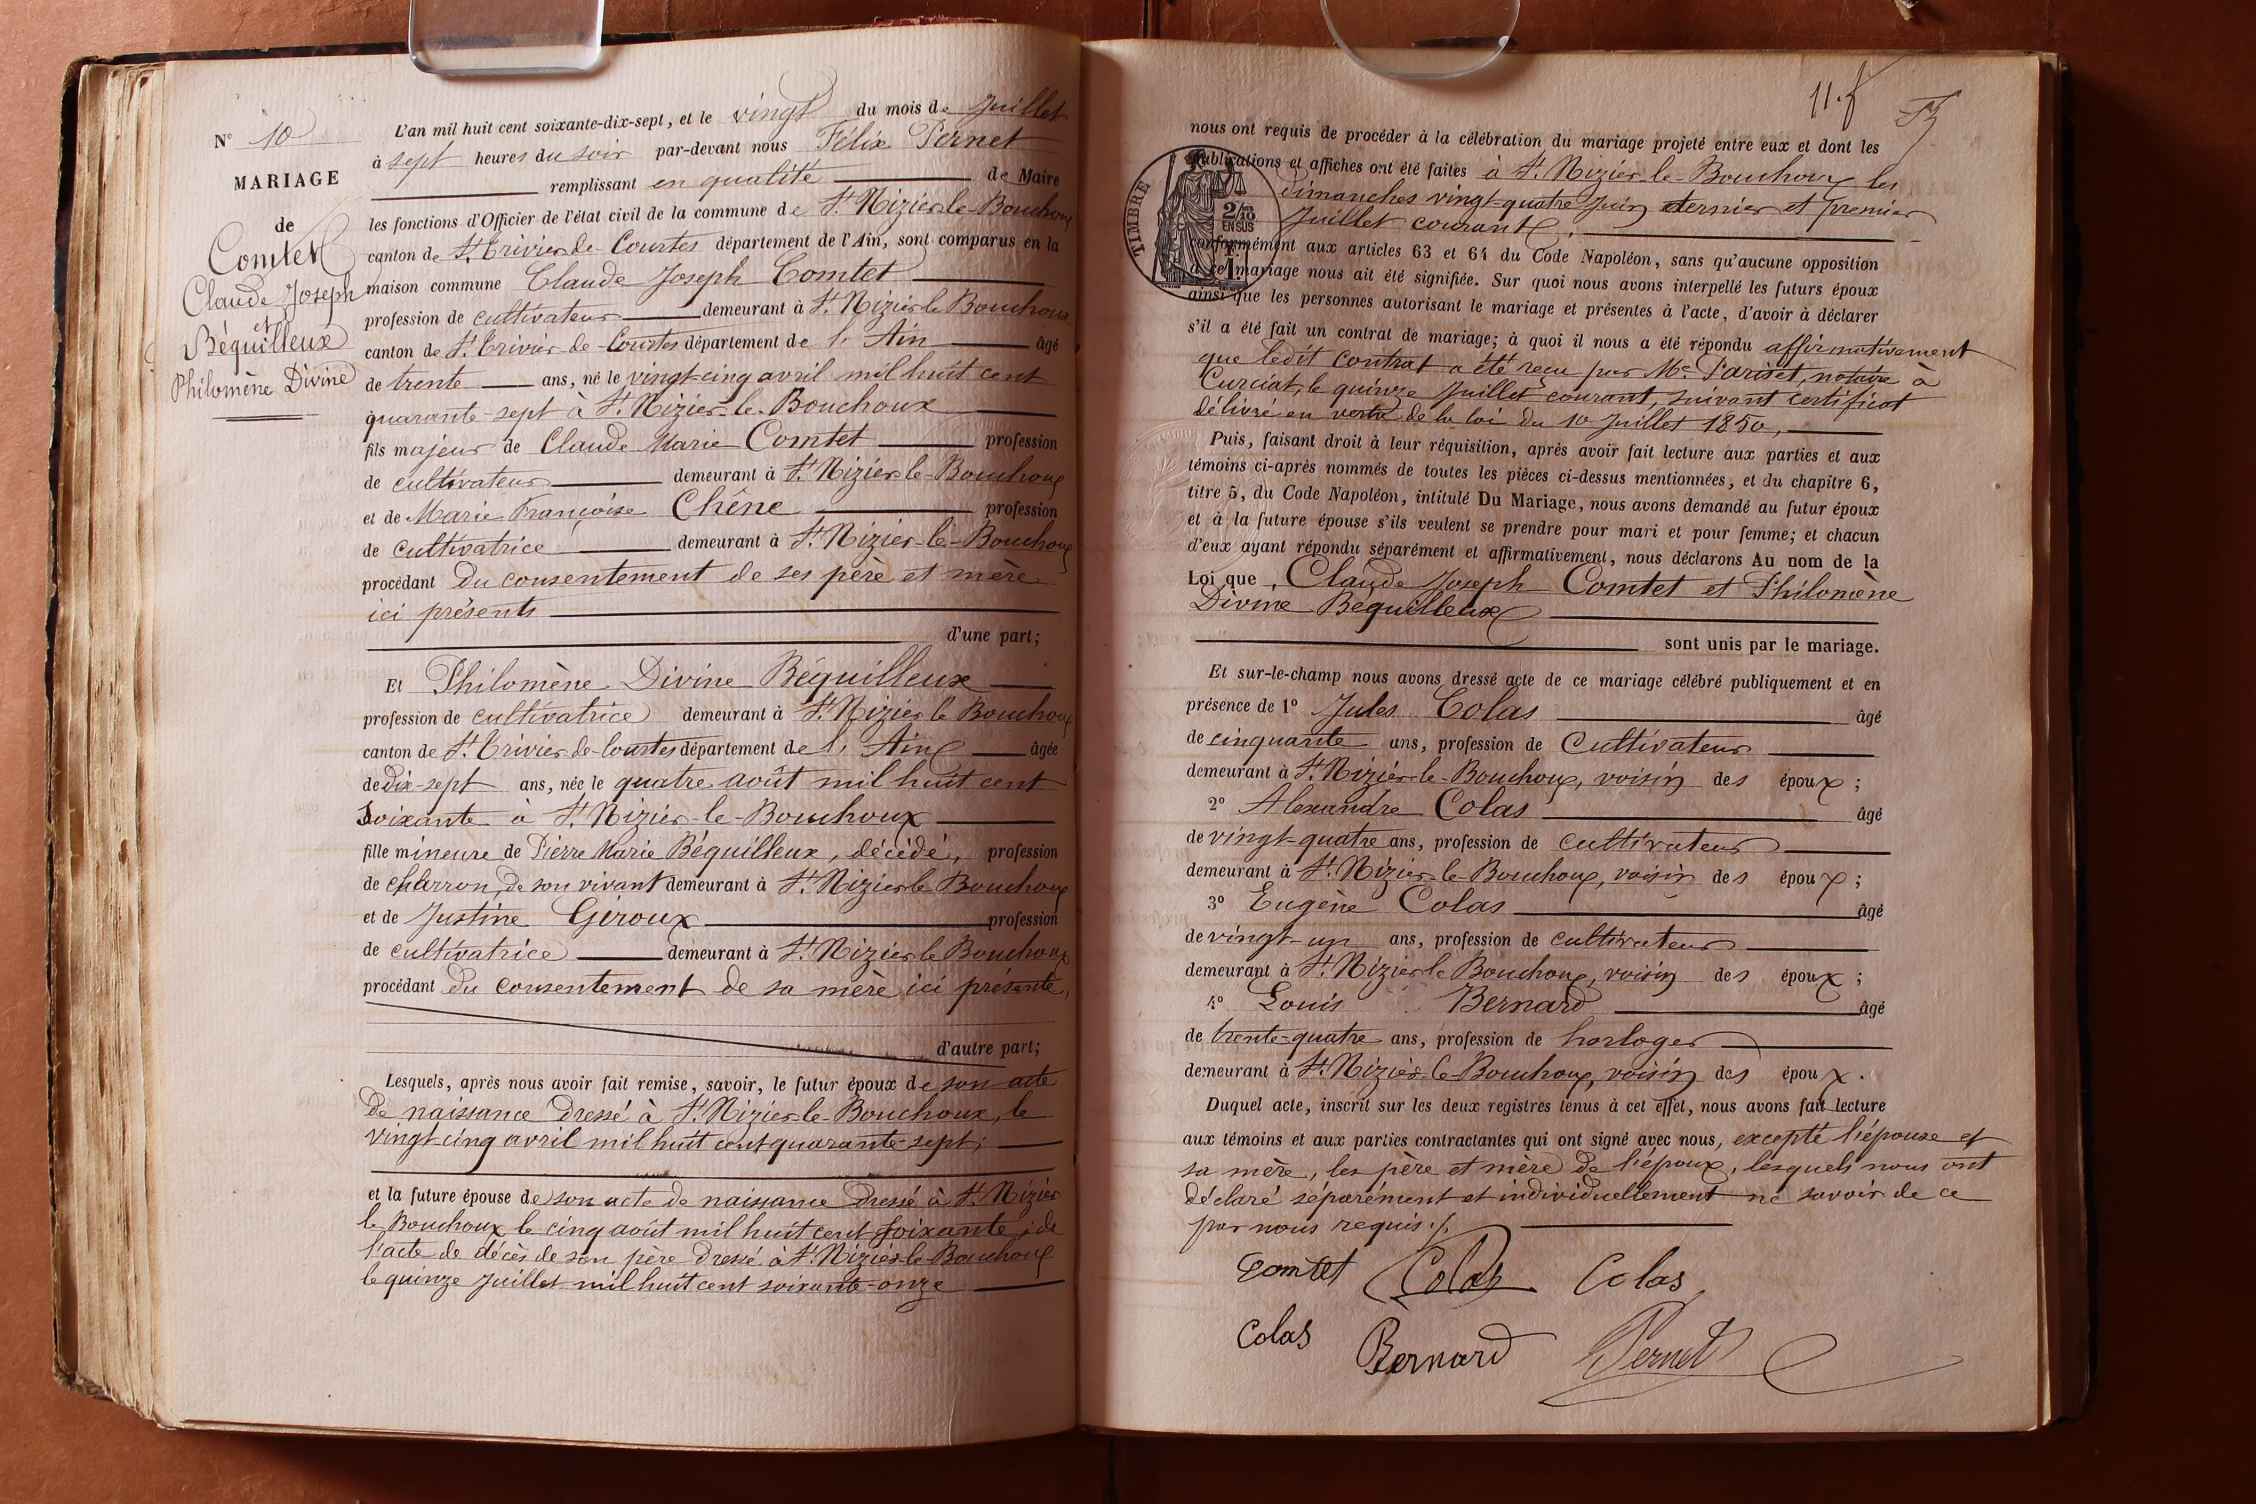 N° 10
MARIAGE
de
Comtet
Claude Joseph
et
Béquilleux
Philomène Divine
L'an mil huit cent soixante-dix-sept, et le vingt du mois de Juillet
à sept heures du soir par-devant nous Félix Pernet
remplissant en qualité de Maire
les fonctions d'Officier de l'état civil de la commune de St Nizier-le-Bouchoux
canton de St Trivier-de Courtes département de l'Ain, sont comparus en la
maison commune Claude Joseph Comtet
profession de cultivateur demeurant à St Nizier le Bouchoux
canton de St Trivier-de-Courtes département de l' Ain âgé
de trente ans, né le vingt-cinq avril mil huit cent
quarante-sept à St Nizier-le-Bouchoux
fils majeur de Claude Marie Comtet profession
de cultivateur demeurant à St Nizier-le-Bouchoux
et de Marie Françoise Chêne profession
de cultivatrice demeurant à St Nizier-le-Bouchoux
procédant du consentement de ses père et mère
ici présents
d'une part;
Et Philomène Divine Béquilleux
profession de cultivatrice demeurant à St Nizier le Bouchoux
canton de St Trivier-de-Courtes département de l' Ain âgée
de dix-sept ans, née le quatre août mil huit cent
soixante à St Nizier-le-Bouchoux
fille mineure de Pierre Marie Béquilleux, décédé, profession
de charron, de son vivant demeurant à St Nizier le Bouchoux
et de Justine Giroux profession
de cultivatrice demeurant à St Nizier le Bouchoux
procédant du consentement de sa mère ici présente,
d'autre part;
Lesquels, après nous avoir fait remise, savoir, le futur époux de son acte
de naissance dressé à St Nizier-le-Bouchoux, le
vingt-cinq avril mil huit cent quarante-sept;
et la future épouse de son acte de naissance dressé à St Nizier
le Bouchoux le cinq août mil huit cent soixante; de
l'acte de décès de son père dressé à St Nizier-le-Bouchoux
le quinze Juillet mil huit cent soixante-onze
11. f
nous ont requis de procéder à la célébration du mariage projeté entre eux et dont les
publications et affiches ont été faites à St Nizier-le-Bouchoux les
dimanches vingt-quatre Juin dernier et premier
Juillet courant.
TIMBRE
2/10
EN SUS
conformément aux articles 63 et 64 du Code Napoléon, sans qu'aucune opposition
à ce mariage nous ait été signifiée. Sur quoi nous avons interpellé les futurs époux
ainsi que les personnes autorisant le mariage et présentes à l'acte, d'avoir à déclarer
s'il a été fait un contrat de mariage; à quoi il nous a été répondu affirmativement
que ledit contrat a été reçu par Me Pariset, notaire à
Curciat, le quinze Juillet courant, suivant certificat
délivré en vertu de la loi du 10 Juillet 1850,
Puis, faisant droit à leur réquisition, après avoir fait lecture aux parties et aux
témoins ci-après nommés de toutes les pièces ci-dessus mentionnées, et du chapitre 6,
titre 5, du Code Napoléon, intitulé Du Mariage, nous avons demandé au futur époux
et à la future épouse s'ils veulent se prendre pour mari et pour femme; et chacun
d'eux ayant répondu séparément et affirmativement, nous déclarons Au nom de la
Loi que, Claude Joseph Comtet et Philomène
Divine Béquilleux
sont unis par le mariage.
Et sur-le-champ nous avons dressé acte de ce mariage célébré publiquement et en
présence de 1° Jules Colas âgé
de cinquante ans, profession de cultivateur
demeurant à St Nizier-le-Bouchoux, voisin des époux;
2° Alexandre Colas âgé
de vingt-quatre ans, profession de cultivateur
demeurant à St Nizier-le-Bouchoux, voisin des époux;
3° Eugène Colas âgé
de vingt-un ans, profession de cultivateur
demeurant à St Nizier le Bouchoux, voisin des époux;
4° Louis Bernard âgé
de trente-quatre ans, profession de horloger
demeurant à St Nizier-le-Bouchoux, voisin des époux.
Duquel acte, inscrit sur les deux registres tenus à cet effet, nous avons fait lecture
aux témoins et aux parties contractantes qui ont signé avec nous, excepté l'épouse et
sa mère, les père et mère de l'époux, lesquels nous ont
déclaré séparément et individuellement ne savoir de ce
par nous requis./.
Comtet Colas Colas
Colas Bernard Pernet